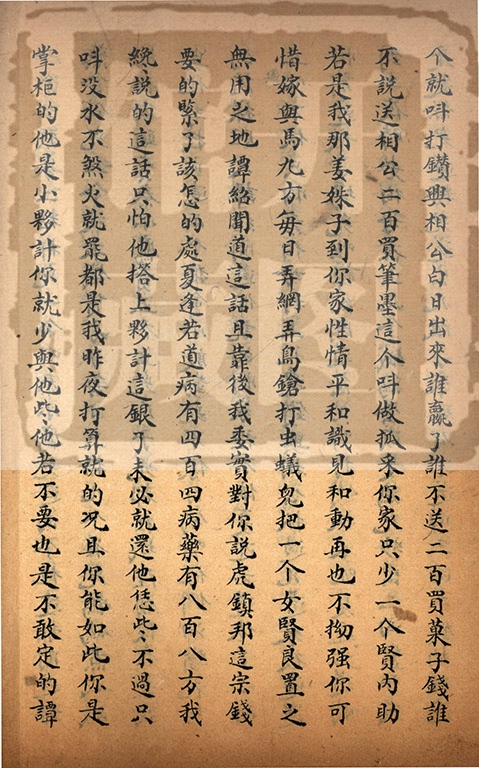 个就呌打鑽與相公白日出來誰贏了誰不送二百買菓子錢誰
不說送相公二百買筆墨這个呌做抓采你家只少一个賢內助
若是我那姜姝子到你家性情平和識見和動再也不拗强你可
惜嫁與馬九方每日弄網弄鳥鎗打虫蟻兒把一个女賢良置之
無用之地譚紹聞道這話且靠後我委實對你說虎鎮邦這宗錢
要的緊了該怎的處夏逄若道病有四百四病藥有八百八方我
纔說的這話只怕他搭上夥計這銀子未必就還他恁些不過只
呌没水不煞火就罷都是我昨夜打算就的况且你能如此你是
掌柜的他是小夥計你就少與他些他若不要也是不敢定的譚